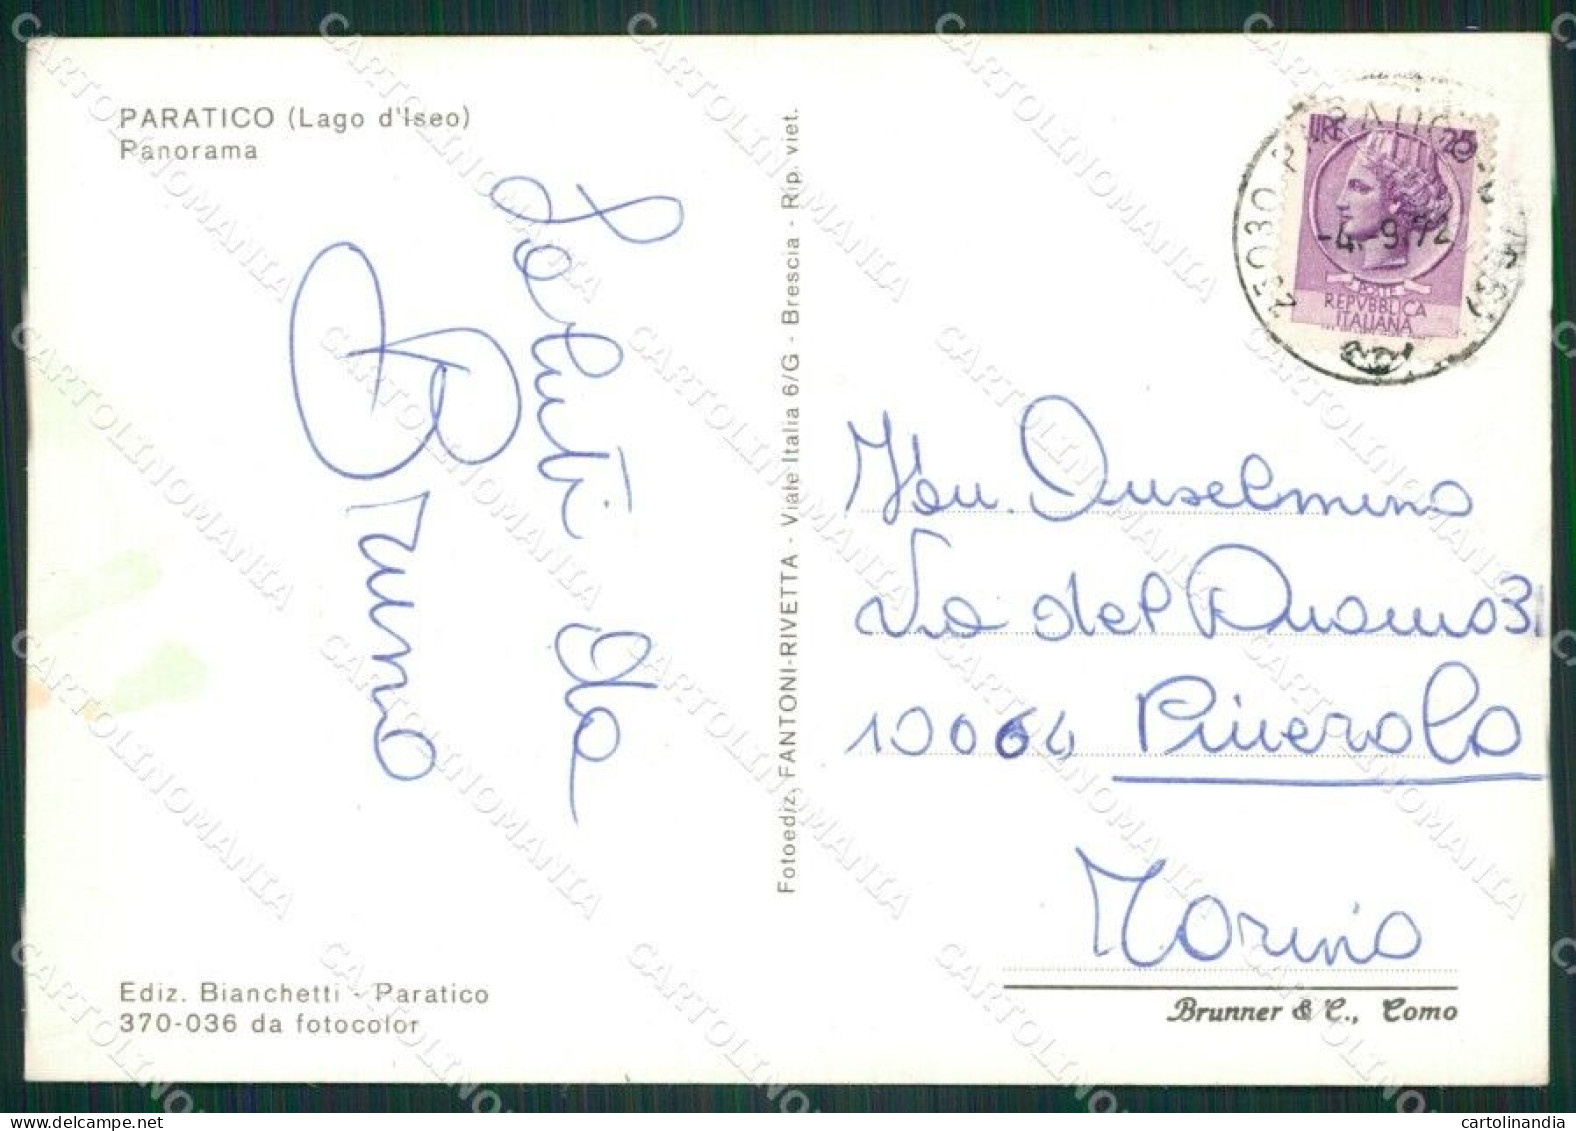 PARATICO (Lago d'Iseo)
Panorama
Saluti da
Bruno
Fotoediz. FANTONI-RIVETTA - Viale Italia 6/G - Brescia - Rip. viet.
LIRE 25
25030 PARATICO
-4.-9.72
POSTE
REPVBBLICA
ITALIANA
Anselmino
Via del Duomo 31
10064 Pinerolo
Torino
Ediz. Bianchetti - Paratico
370-036 da fotocolor
Brunner & C., Como
CARTOLINOMANIA
www.delcampe.net
cartolinandia